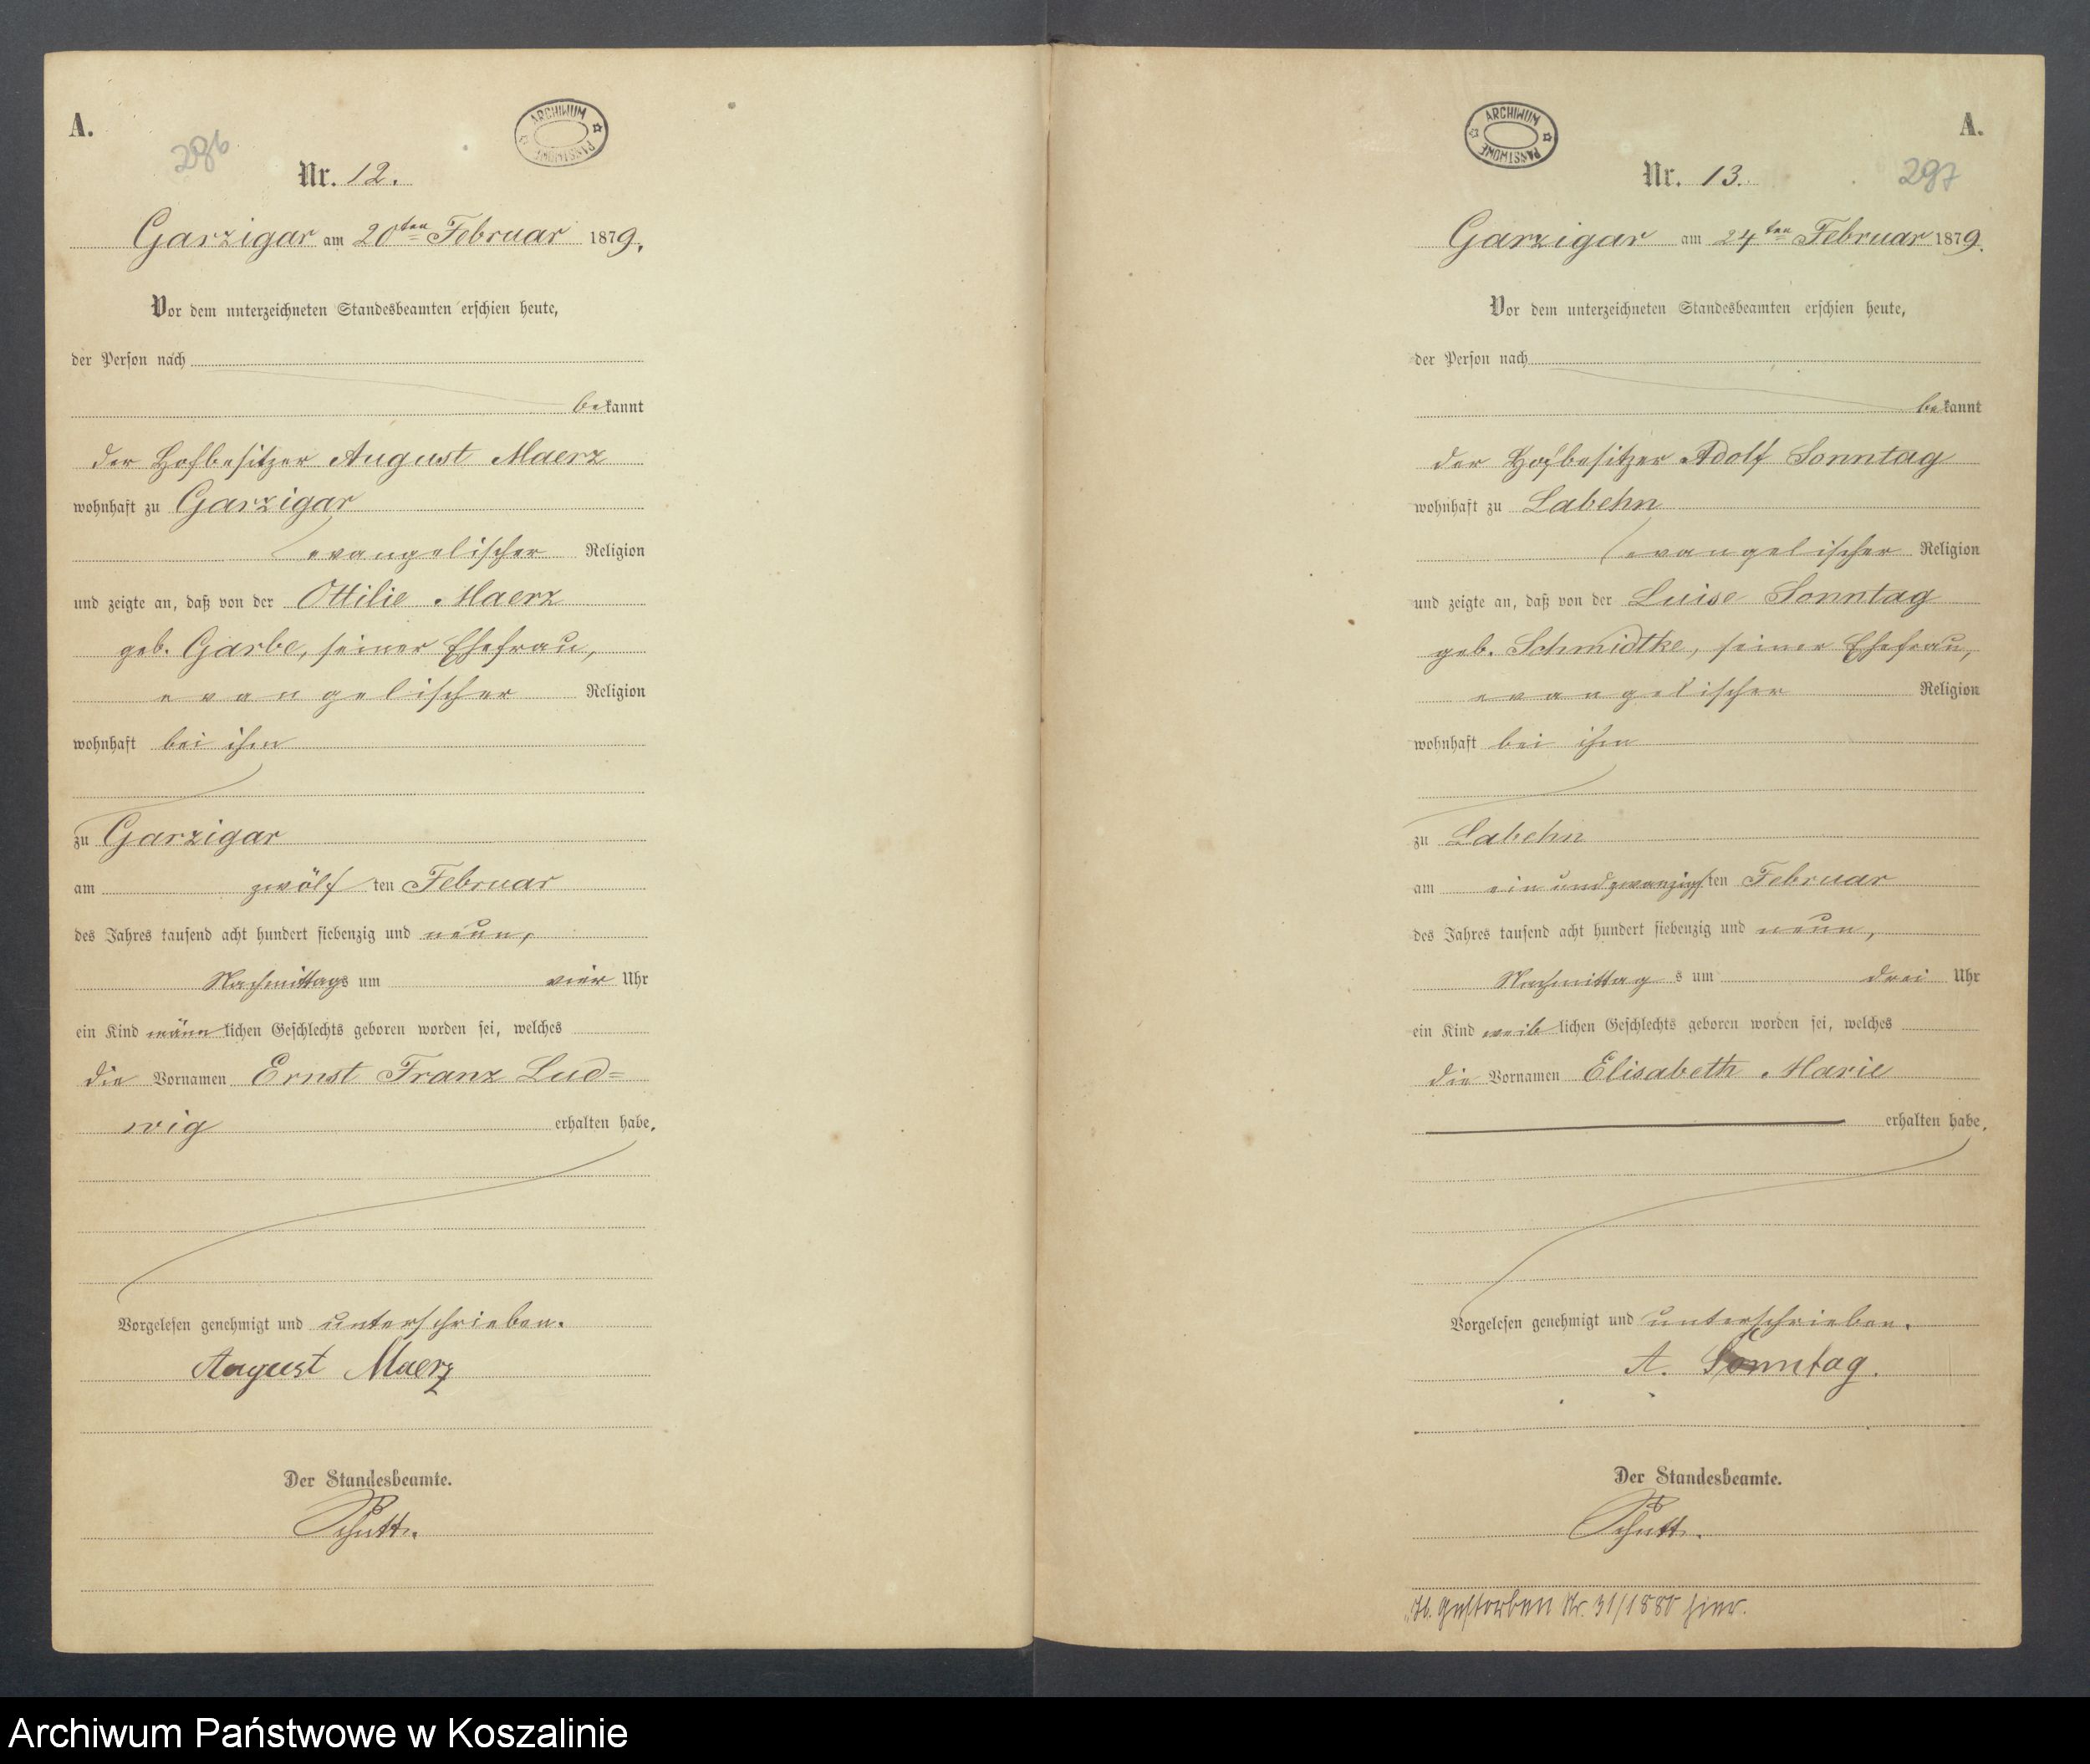 A.
296
ARCHIWUM PAŃSTWOWE
Nr. 12.
Garzigar am 20ten Februar 1879.
Vor dem unterzeichneten Standesbeamten erschien heute,
der Person nach
bekannt
der Hofbesitzer August Maerz
wohnhaft zu Garzigar
evangelischer Religion
und zeigte an, daß von der Ottilie Maerz
geb. Garbe, seiner Ehefrau,
evangelischer Religion
wohnhaft bei ihm
zu Garzigar
am zwölf ten Februar
des Jahres tausend acht hundert siebenzig und neun,
Nachmittags um vier Uhr
ein Kind männlichen Geschlechts geboren worden sei, welches
die Vornamen Ernst Franz Lud=
wig erhalten habe.
Vorgelesen genehmigt und unterschrieben.
August Maerz
Der Standesbeamte.
ARCHIWUM PAŃSTWOWE
A.
Nr. 13.
297
Garzigar am 24ten Februar 1879.
Vor dem unterzeichneten Standesbeamten erschien heute,
der Person nach
bekannt
der Hofbesitzer Adolf Sonntag
wohnhaft zu Labehn
evangelischer Religion
und zeigte an, daß von der Luise Sonntag
geb. Schmidtke, seiner Ehefrau,
evangelischer Religion
wohnhaft bei ihm
zu Labehn
am ein und zwanzigsten Februar
des Jahres tausend acht hundert siebenzig und neun,
Nachmittags um drei Uhr
ein Kind weiblichen Geschlechts geboren worden sei, welches
die Vornamen Elisabeth Marie
erhalten habe.
Vorgelesen genehmigt und unterschrieben.
A. Sonntag.
Der Standesbeamte.
Gestorben Nr. 31/1880 hier.
Archiwum Państwowe w Koszalinie